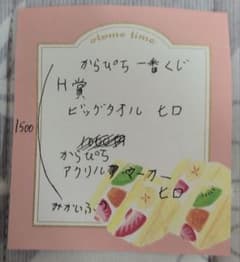 otome time
からぴち 一番くじ
H賞
ビッグタオル ヒロ
1500
からぴち
アクリルマーカー
ヒロ
みかいふ